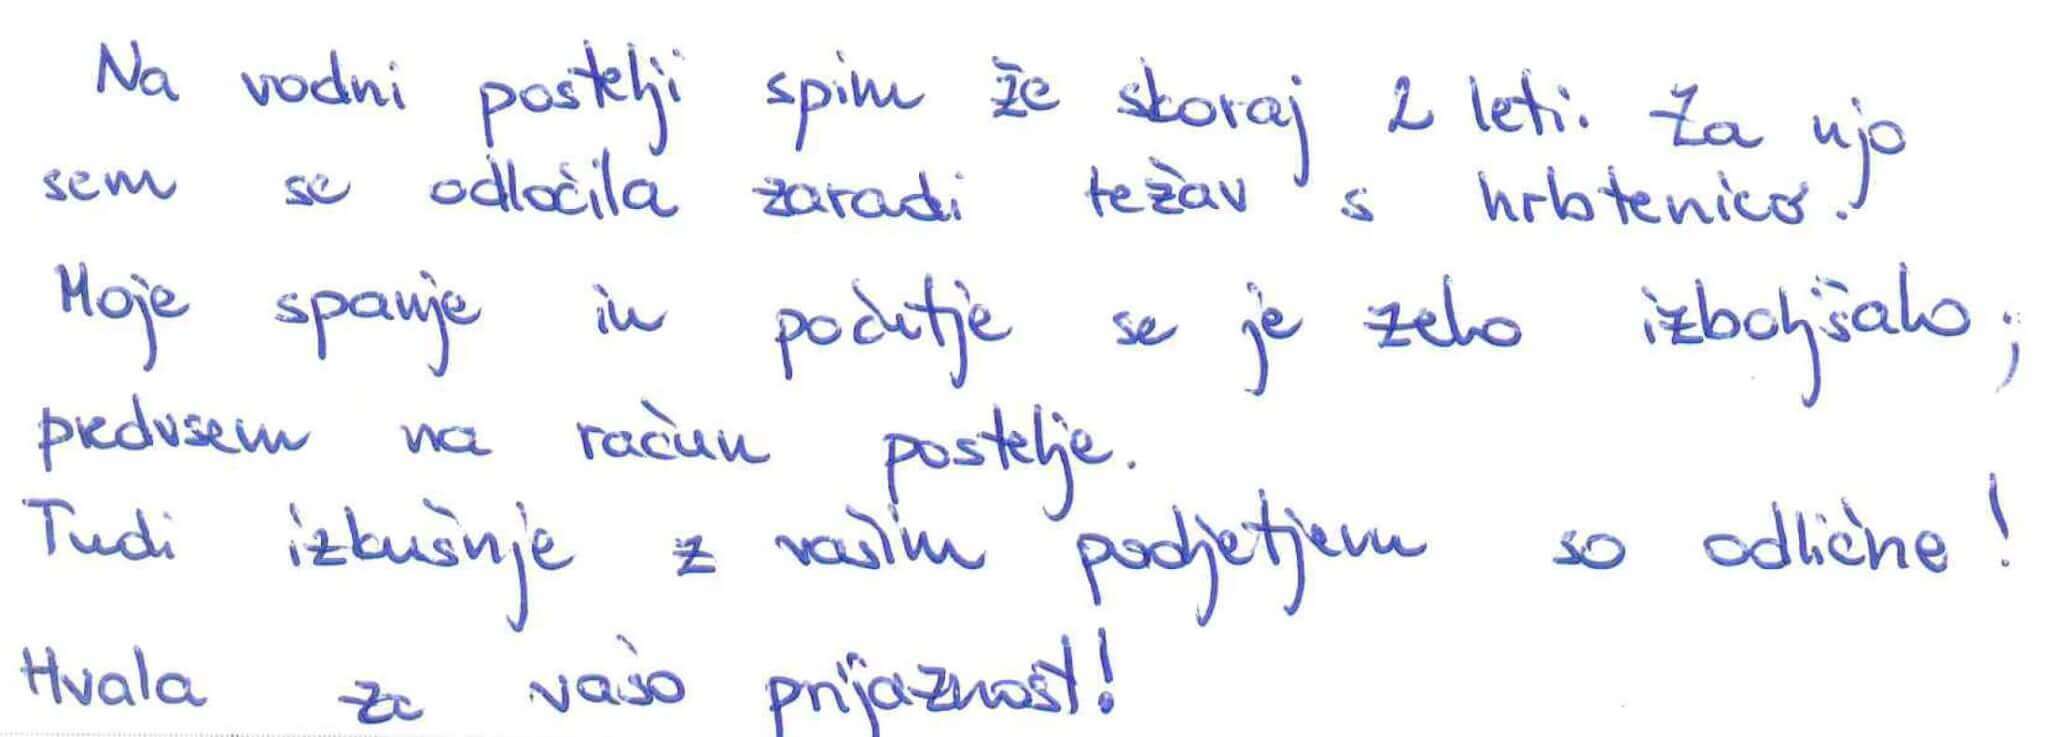 Na vodni postelji spim že skoraj 2 leti. Za njo
sem se odločila zaradi težav s hrbtenico.
Moje spanje in počutje se je zelo izboljšalo;
predvsem na račun postelje.
Tudi izkušnje z vašim podjetjem so odlične!
Hvala za vašo prijaznost!